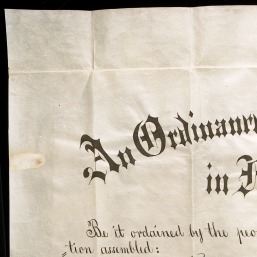 An Ordinance
in
Be it ordained by the peo
tion assembled: